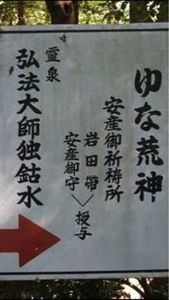 ゆな荒神
安産御祈祷所
岩田帯
安産御守
授与
霊泉
弘法大師独鈷水